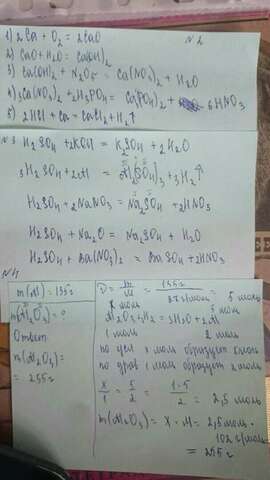 1) 2Ca + O₂ = 2CaO N 2
2) CaO + H₂O = Ca(OH)₂
3) Ca(OH)₂ + N₂O₅ = Ca(NO₃)₂ + H₂O
4) 3Ca(NO₃)₂ + 2H₃PO₄ = Ca₃(PO₄)₂ + 6HNO₃
5) 2HCl + Ca = CaCl₂ + H₂↑
N 3 H₂SO₄ + 2KOH = K₂SO₄ + 2H₂O
3H₂SO₄ + 2Al = Al₂(SO₄)₃ + 3H₂↑
H₂SO₄ + 2NaNO₃ = Na₂SO₄ + 2HNO₃
H₂SO₄ + Na₂O = Na₂SO₄ + H₂O
H₂SO₄ + Ba(NO₃)₂ = BaSO₄ + 2HNO₃
N4
m(Al) = 135 г
m(Al₂O₃) = ?
Ответ:
m(Al₂O₃) =
= 255 г
ν = m/M = 135 г / 27 г/моль = 5 моль
X моль 5 моль
Al₂O₃ + H₂ = 3H₂O + 2Al
1 моль 2 моль
по усл X моль образует 5 моль
по урав 1 моль образует 2 моль
X/1 = 5/2 = 1·5/2 = 2,5 моль
m(Al₂O₃) = X · M = 2,5 моль ·
102 г/моль
= 255 г